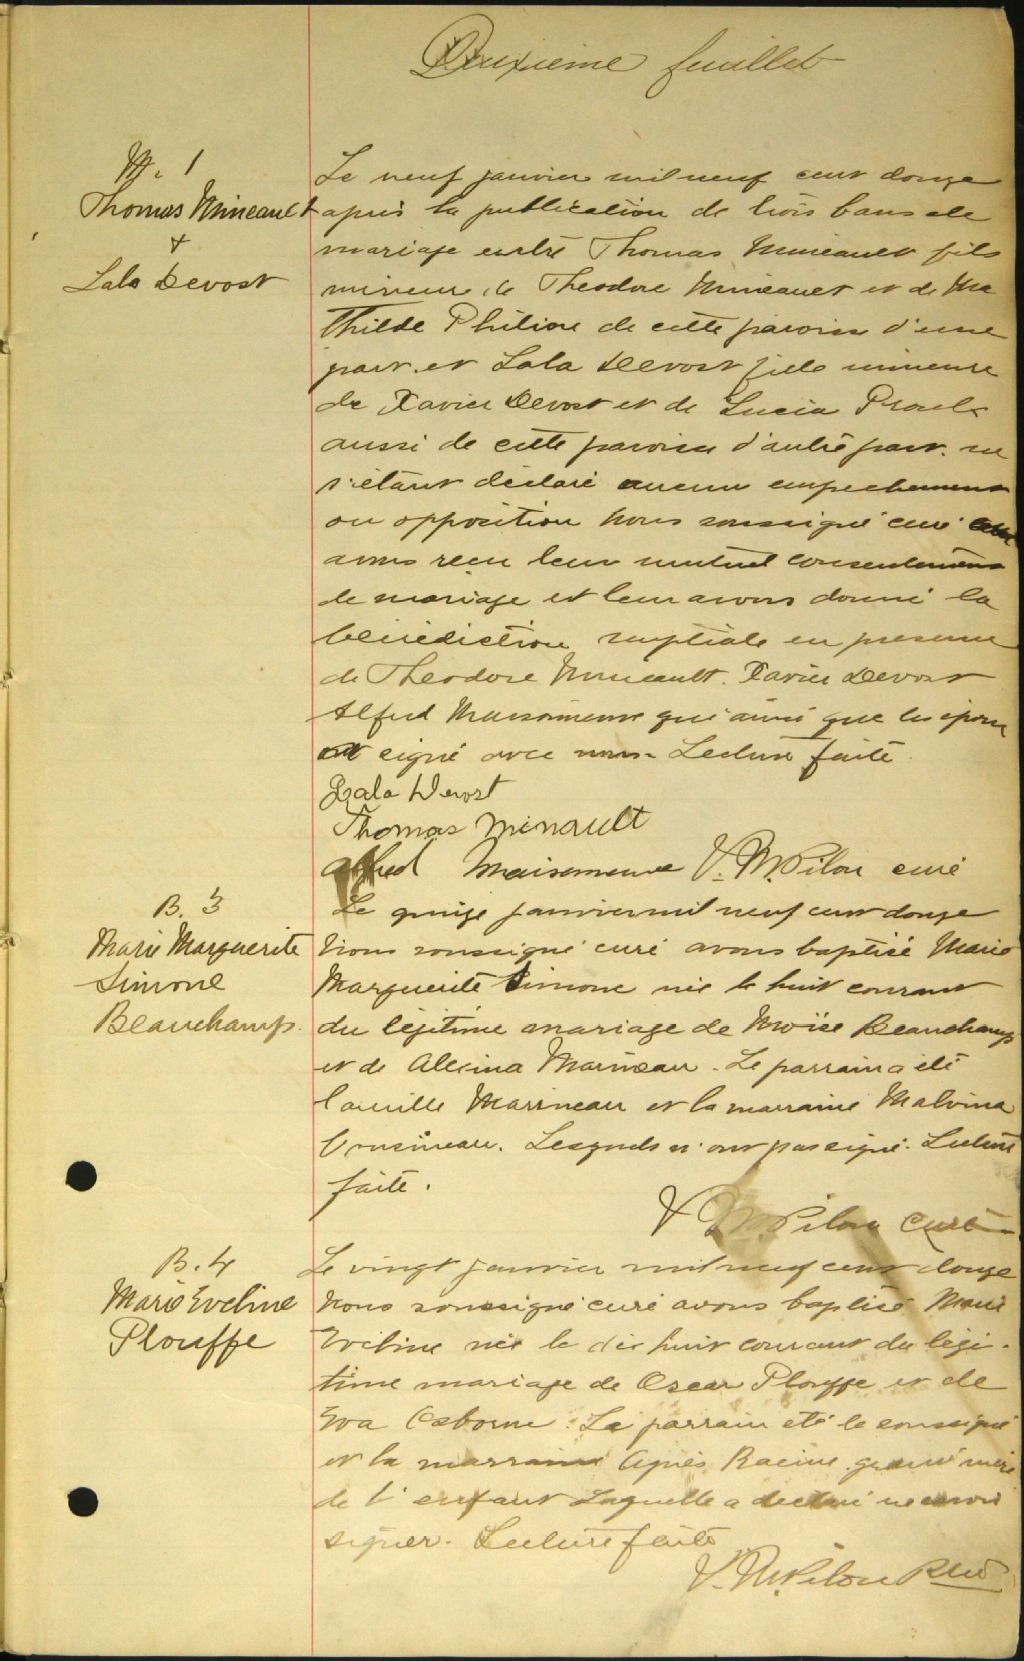 Deuxième feuillet
M. 1
Thomas Mineault
+
Lala Devost
Le neuf janvier mil neuf cent douze
après la publication de trois bans de
mariage entre Thomas Mineault fils
mineur de Theodore Mineault et de Ma
thilde Philion de cette paroisse d'une
part et Lala Devost fille mineure
de Xavier Devost et de Lucia Proulx
aussi de cette paroisse d'autre part. ne
s'étant déclaré aucun empechement
ou opposition Nous soussigné curé
avons recu leur mutuel consentement
de mariage et leur avons donné la
bénédiction nuptiale en presence
de Theodore Mineault. Xavier Devost
Alfred Maisonneuve qui ainsi que les époux
ont signé avec nous. Lecture faite.
Lala Devost
Thomas Minault
Alfred Maisonneuve V. M. Pilon curé
B. 3
Marie Marguerite
Simone
Beauchamp.
Le quinze janvier mil neuf cent douze
Nous soussigné curé avons baptisé Marie
Marguerite Simone née le huit courant
du légitime mariage de Moïse Beauchamp
et de Alexina Marineau. Le parrain a été
Camille Marineau et la marraine Malvina
Cousineau. Lesquels n'ont pas signé. Lecture
faite.
V. M. Pilon Curé
B. 4
Marie Eveline
Plouffe
Le vingt janvier mil neuf cent douze
Nous soussigné curé avons baptisé Marie
Eveline née le dix huit courant du légi-
time mariage de Oscar Plouffe et de
Eva Osborne. Le parrain été le soussigné
et la marraine Agnès Racine grand'mère
de l'enfant Laquelle a declaré ne savoir
signer. Lecture faite
V. M. Pilon